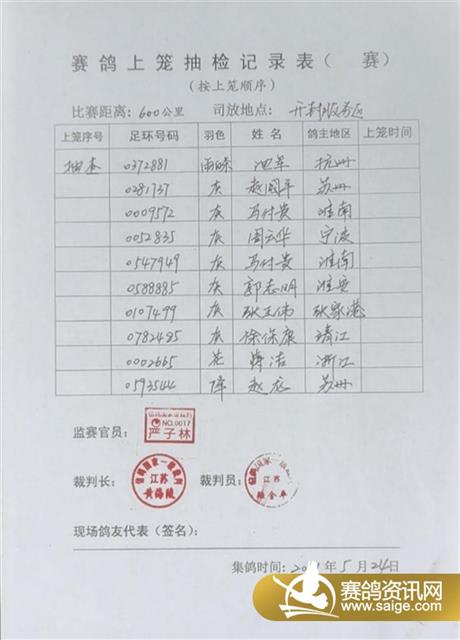 赛鸽上笼抽检记录表（ 赛）
（按上笼顺序）
比赛距离：600公里 司放地点：开封服务区
上笼序号 足环号码 羽色 姓名 鸽主地区 上笼时间
抽查 0372881 雨 杭州
0281737 灰 赵国平 苏州
0009572 灰 马付贵 淮南
0052835 灰 周云华 宁波
0547949 灰 马付贵 淮南
0588885 灰 郭志明 淮安
0107499 灰 张正伟 张家港
0782485 灰 徐保康 靖江
0002665 花 洁 浙江
0593544 赵 苏州
监赛官员：
NO.0017
严子林
裁判长：
信鸽国家一级裁判
江苏
黄海陵
裁判员：
江苏
现场鸽友代表（签名）：
集鸽时间：2021年5月24日
赛鸽资讯网
www.saige.com